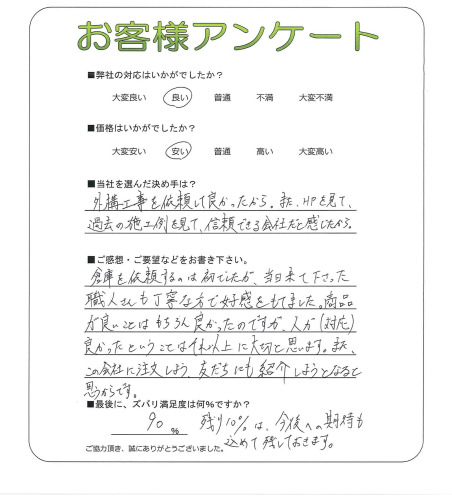 お客様アンケート
■弊社の対応はいかがでしたか？
大変良い 良い 普通 不満 大変不満
■価格はいかがでしたか？
大変安い 安い 普通 高い 大変高い
■当社を選んだ決め手は？
外構工事を依頼して良かったから。また、HPを見て、
過去の施工例を見て、信頼できる会社だと感じたから。
■ご感想・ご要望などをお書き下さい。
倉庫を依頼するのは初でしたが、当日来て下さった
職人さんも丁寧な方で好感をもてました。商品
が良いことはもちろん良かったのですが、人が(対応)
良かったということはそれ以上に大切と思います。また、
この会社に注文しよう、友だちにも紹介しようとなると
思うからです。
■最後に、ズバリ満足度は何％ですか？
90 ％ 残り10%は、今後への期待も
込めて残しておきます。
ご協力頂き、誠にありがとうございました。